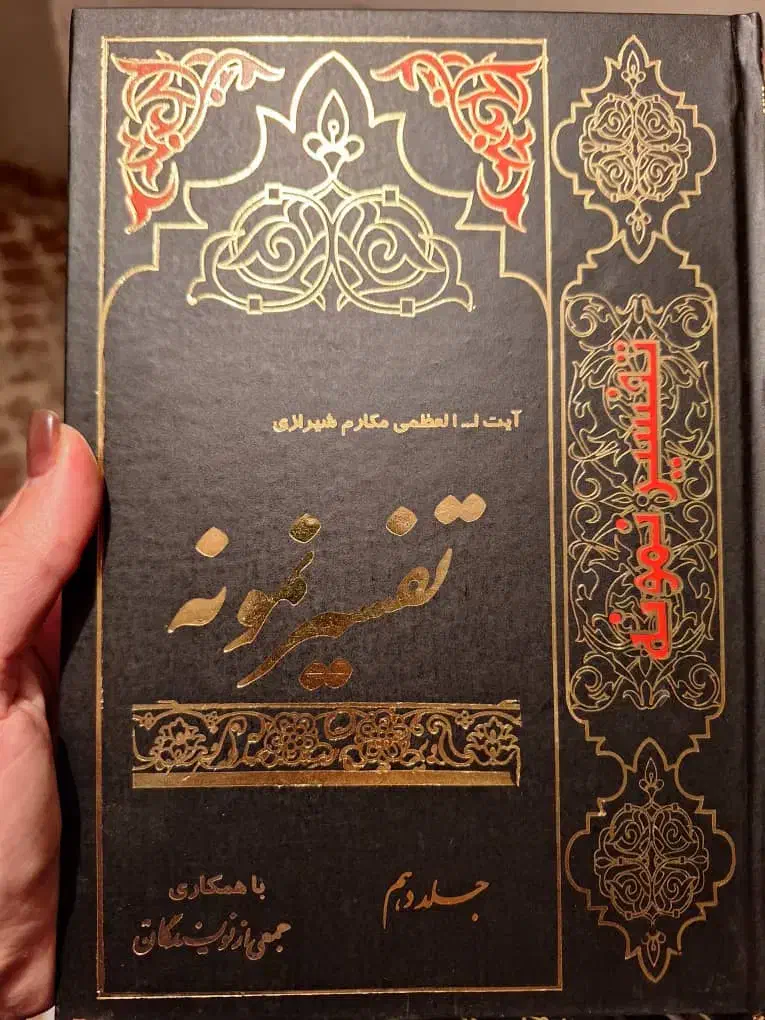 آیت ا... العظمی مکارم شیرازی
تفسیر نمونه
جلد دهم
با همکاری
جمعی از نویسندگان
تفسیر نمونه